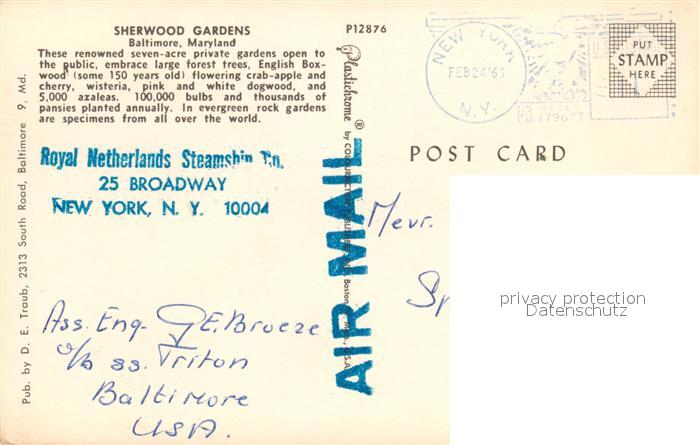 SHERWOOD GARDENS
Baltimore, Maryland
These renowned seven-acre private gardens open to
the public, embrace large forest trees, English Box-
wood (some 150 years old) flowering crab-apple and
cherry, wisteria, pink and white dogwood, and
5,000 azaleas. 100,000 bulbs and thousands of
pansies planted annually. In evergreen rock gardens
are specimens from all over the world.
P12876
NEW YORK
FEB 24 '65
N.Y.
P.B. 179677
PUT
STAMP
HERE
Royal Netherlands Steamship Co.
25 BROADWAY
NEW YORK, N. Y. 10004
Pub. by D. E. Traub, 2313 South Road, Baltimore 9, Md.
Plastichrome ® by COLOURPICTURE PUBLISHERS, INC. Boston, Mass., U.S.A.
AIR MAIL
POST CARD
Mevr.
Sp
privacy protection
Datenschutz
Ass. Eng. E. Broeze
o/b ss. Triton
Baltimore
USA.